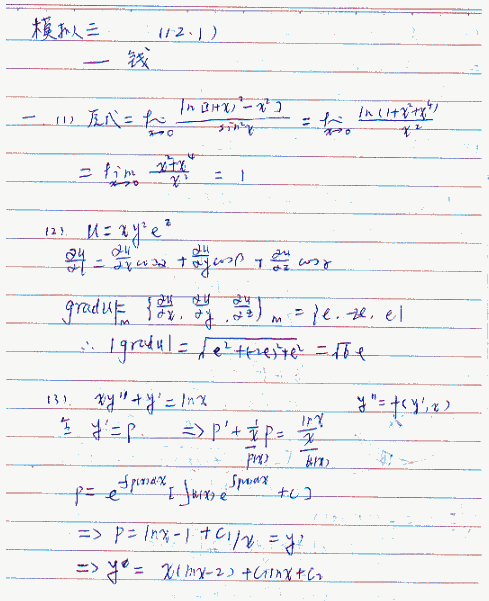 模拟三 (1.2.1)
一 钱
一 (1) 原式 = lim x→0 ln[(1+x²)²-x²]/sin²x = lim x→0 ln(1+x²+x⁴)/x²
= lim x→0 (x²+x⁴)/x² = 1
(2). u = xy²e^z
∂u/∂l = ∂u/∂x cosα + ∂u/∂y cosβ + ∂u/∂z cosγ
gradu|m = {∂u/∂x, ∂u/∂y, ∂u/∂z}m = {e, -2e, e}
∴ |gradu| = √(e²+(-2e)²+e²) = √6 e
(3). xy''+y' = lnx y''=f(y',x)
y'=p. => p'+(1/x)p = lnx/x
p(x) Q(x)
p = e^(-∫p(x)dx) [∫Q(x)e^(∫p(x)dx) +C]
=> p = lnx-1+C₁/x = y'
=> y = x(lnx-2)+C₁lnx+C₂